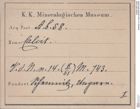 K. K. Mineralogisches Museum.
Acq. Post A.L.88.
Name Calcit.
Fundort Schemnitz, Ungarn.